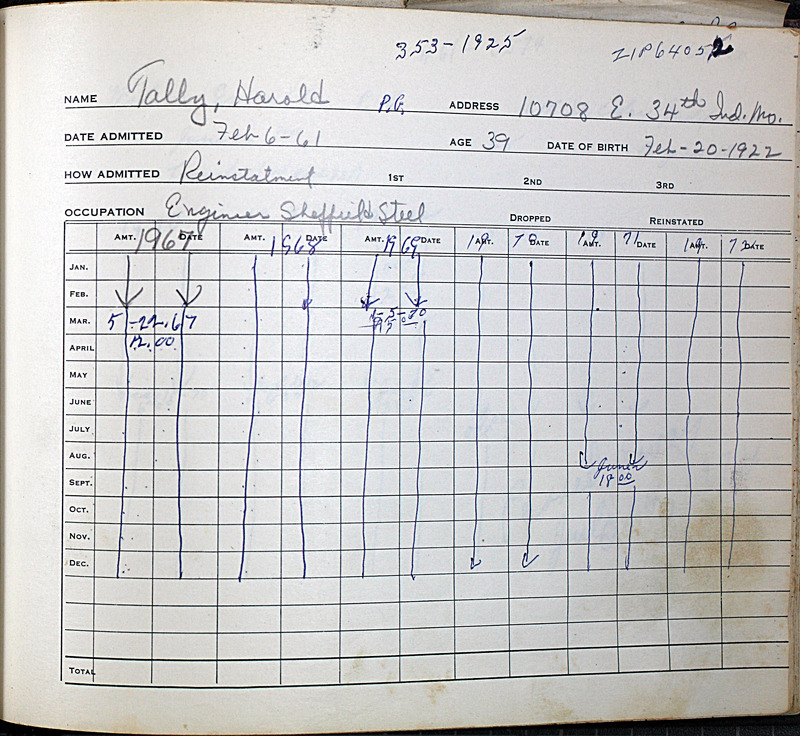 353-1925 ZIP64052
NAME Tally, Harold P.G. ADDRESS 10708 E. 34th Ind. Mo.
DATE ADMITTED Feb 6-61 AGE 39 DATE OF BIRTH Feb-20-1922
HOW ADMITTED Reinstatment 1ST 2ND 3RD
OCCUPATION Enginier Sheffield Steel DROPPED REINSTATED
AMT. 1967 DATE AMT. 1968 DATE AMT. 1969 DATE 19 AMT. 70 DATE 19 AMT. 71 DATE 19 AMT. 7 DATE
JAN.
FEB.
MAR. 5-22-67
APRIL 12.00
MAY
JUNE
JULY
AUG.
SEPT. 18 00
OCT.
NOV.
DEC.
TOTAL